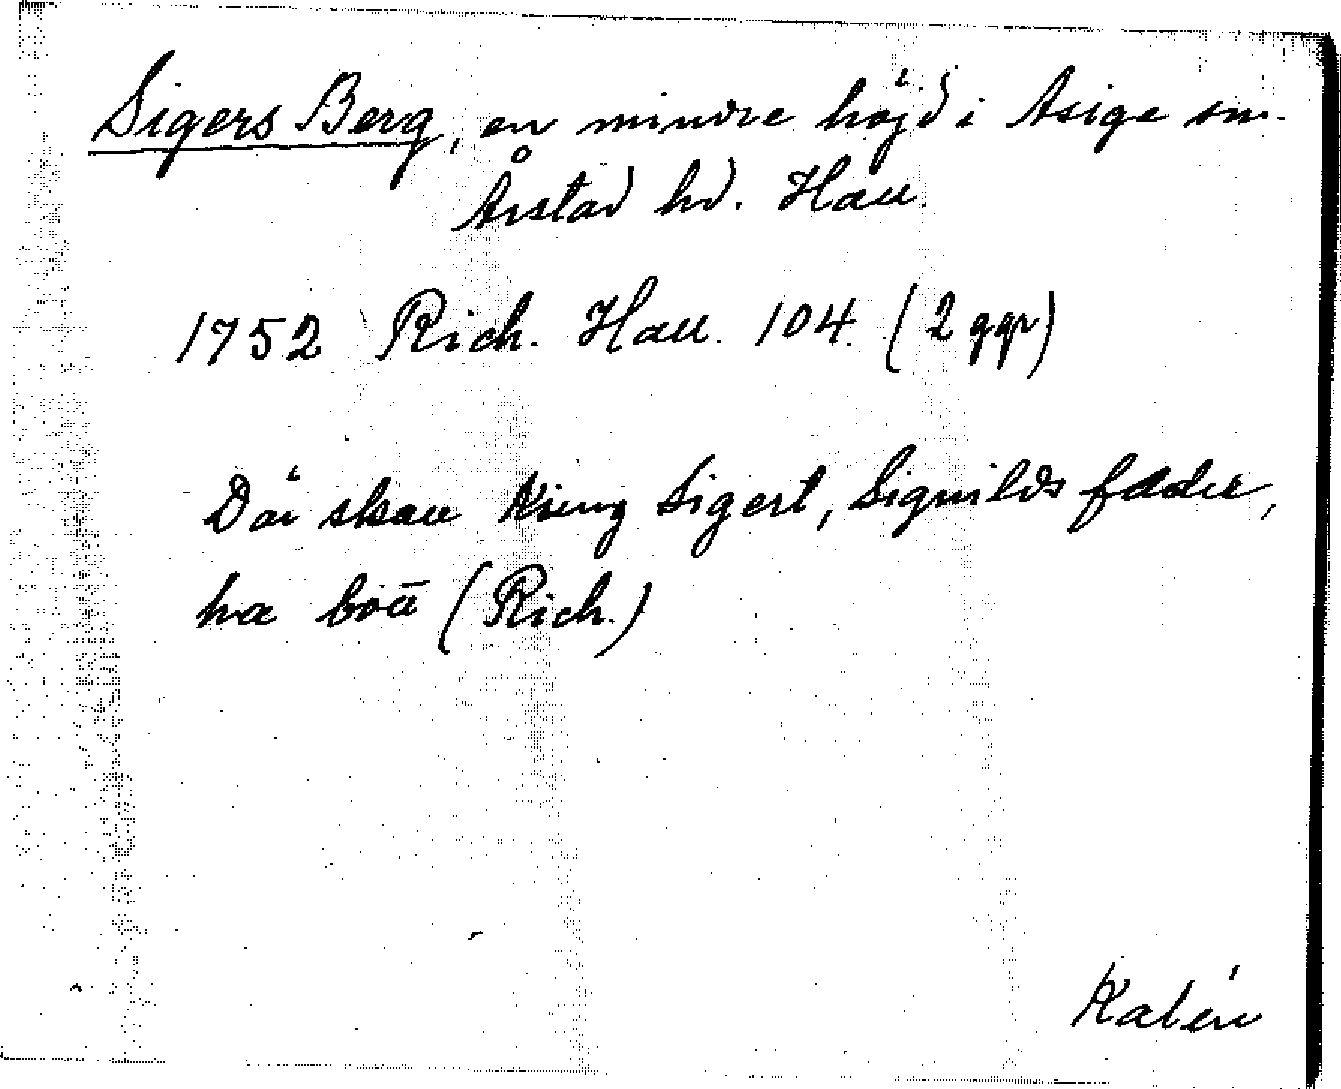 Sigers Berg, en mindre höjd i Asige sn.
Årstad hd. Hall.
1752 Rich. Hall. 104. (2 ggr)
Där skall King Sigert, Signilds fader,
ha bott (Rich.)
Kalén